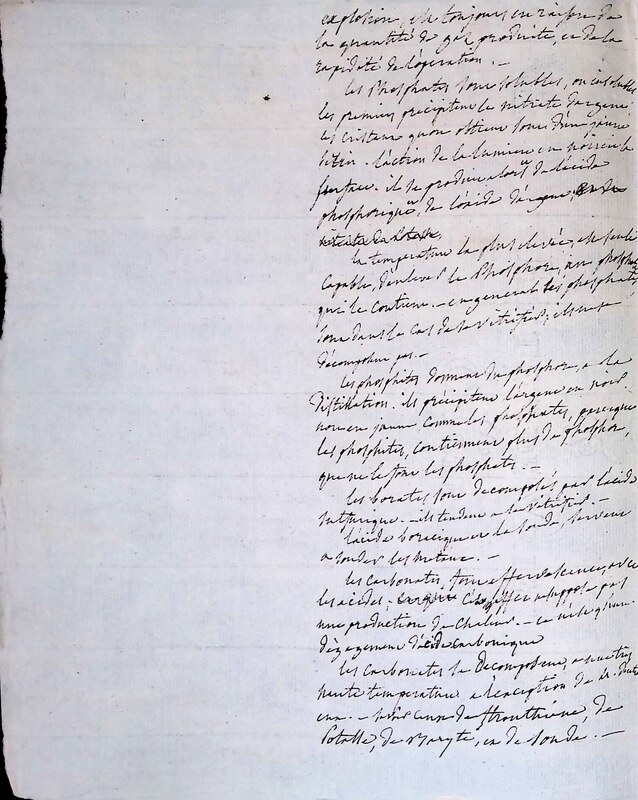 explosion, est toujours en raison de
la quantité de gaz produite, et de la
rapidité de l'opération. –
les Phosphates sont solubles, ou insolubles
les premiers précipitent le nitrate d'argent
les cristaux qu'on obtient sont d'un jaune
citrin. l'action de la lumiere en noircit la
surface. il se produit alors de l'acide
phosphorique, de l'oxide d'argent,
la temperature la plus elevée, est seule
capable, d'enlever le Phosphore, au phosphate
qui le contient. – en general les phosphates
sont dans le cas de se vitrifier; ils ne se
décomposent pas. –
les phosphites donnent du phosphore, a la
distillation. ils précipitent l'argent en noir
non en jaune comme les phosphates, parceque
les phosphites, contiennent plus de phosphore,
que ne le font les phosphates. –
les borates sont decomposés par l'acide
sulfurique. – ils tendent a se vitrifier. –
l'acide boracique et la soude, servent
a souder les métaux. –
les carbonates, font effervescence, avec
les acides. cet effet ne suppose pas
une production de chaleur. – ce n'est qu'un
dégagement d'acide carbonique
les carbonates se decomposent, a une très
haute temperature a l'exception de
eux. – ceux de strontiane, de
Potasse, de Baryte, et de soude. –